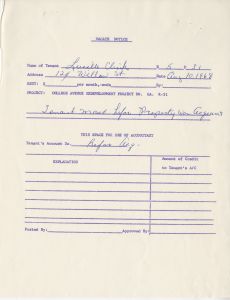 VACATE NOTICE
Name of Tenant Lucille Clark # 5 0 31
Address 124 Willow St. Date Aug 10, 1968
RENT: $ per month, ends By:
PROJECT: COLLEGE AVENUE REDEVELOPMENT PROJECT NO. GA. R-31
Tenant moved before Property was Acquired
THIS SPACE FOR USE OF ACCOUNTANT
Tenant's Account Is: Before Acq.
EXPLANATION
Amount of Credit
to Tenant's A/C
Posted By: Approved By: